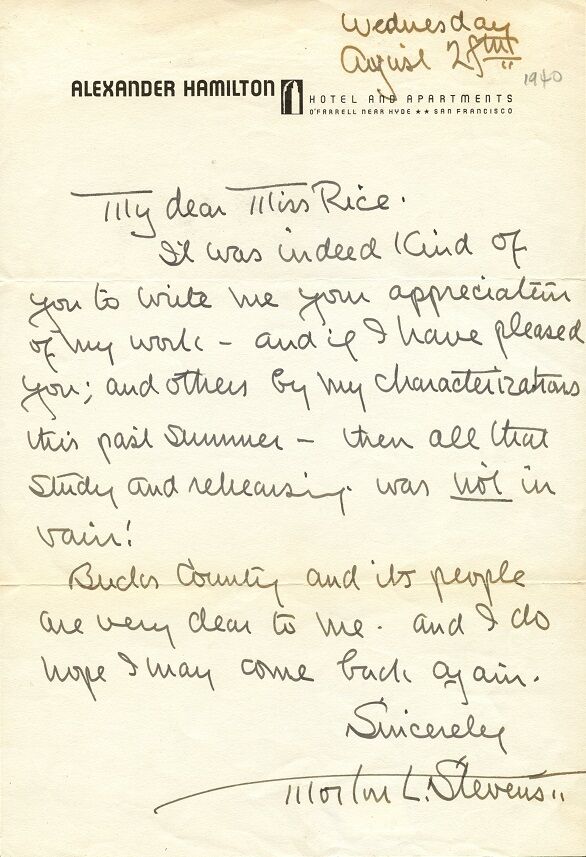 Wednesday
August 28th
1940
ALEXANDER HAMILTON
HOTEL AND APARTMENTS
O'FARRELL NEAR HYDE ★★ SAN FRANCISCO
My dear Miss Rice.
It was indeed kind of
you to write me your appreciation
of my work – and if I have pleased
you; and others by my characterizations
this past summer – then all that
study and rehearsing was not in
vain!
Bucks County and its people
are very dear to me. and I do
hope I may come back again.
Sincerely
Morton L. Stevens